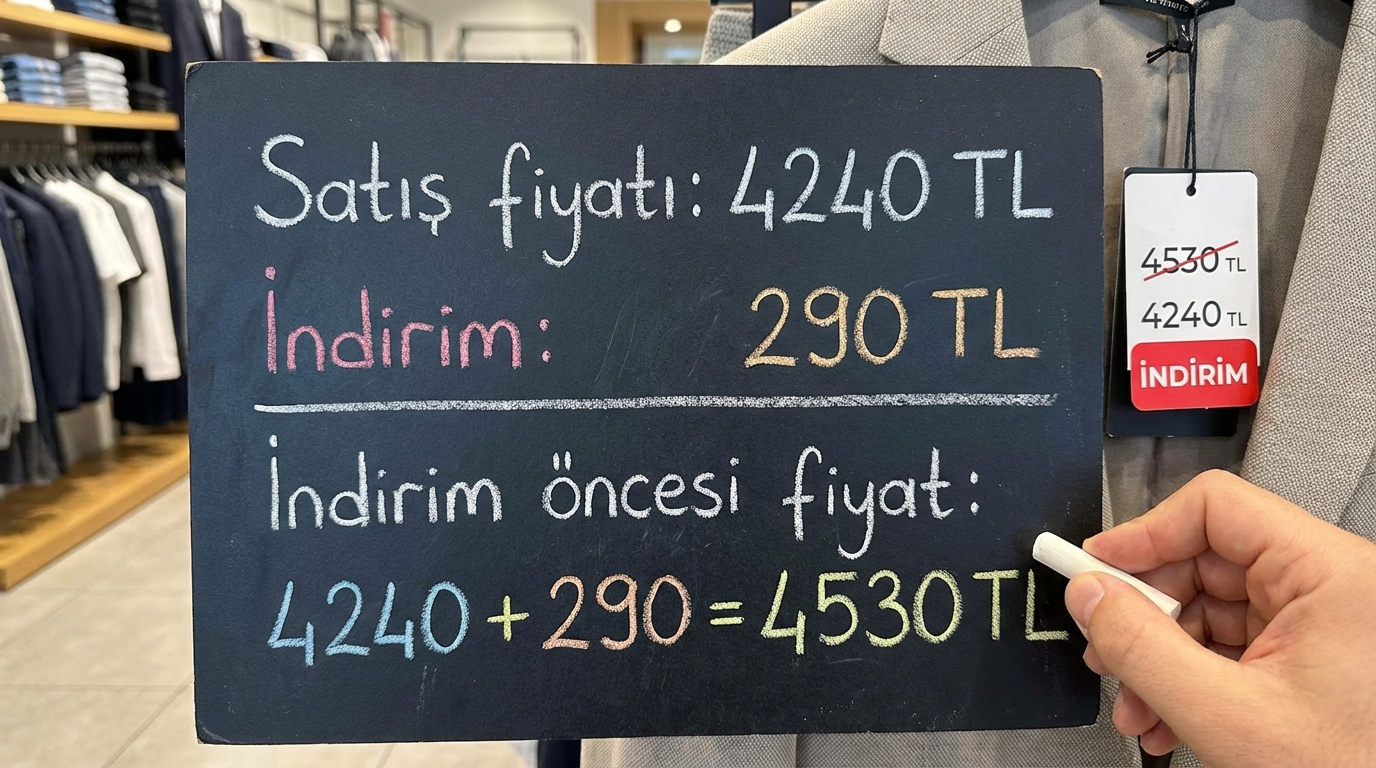 Satış fiyatı: 4240 TL
İndirim: 290 TL
İndirim öncesi fiyat:
4240 + 290 = 4530 TL
4530 TL
4240 TL
İNDİRİM